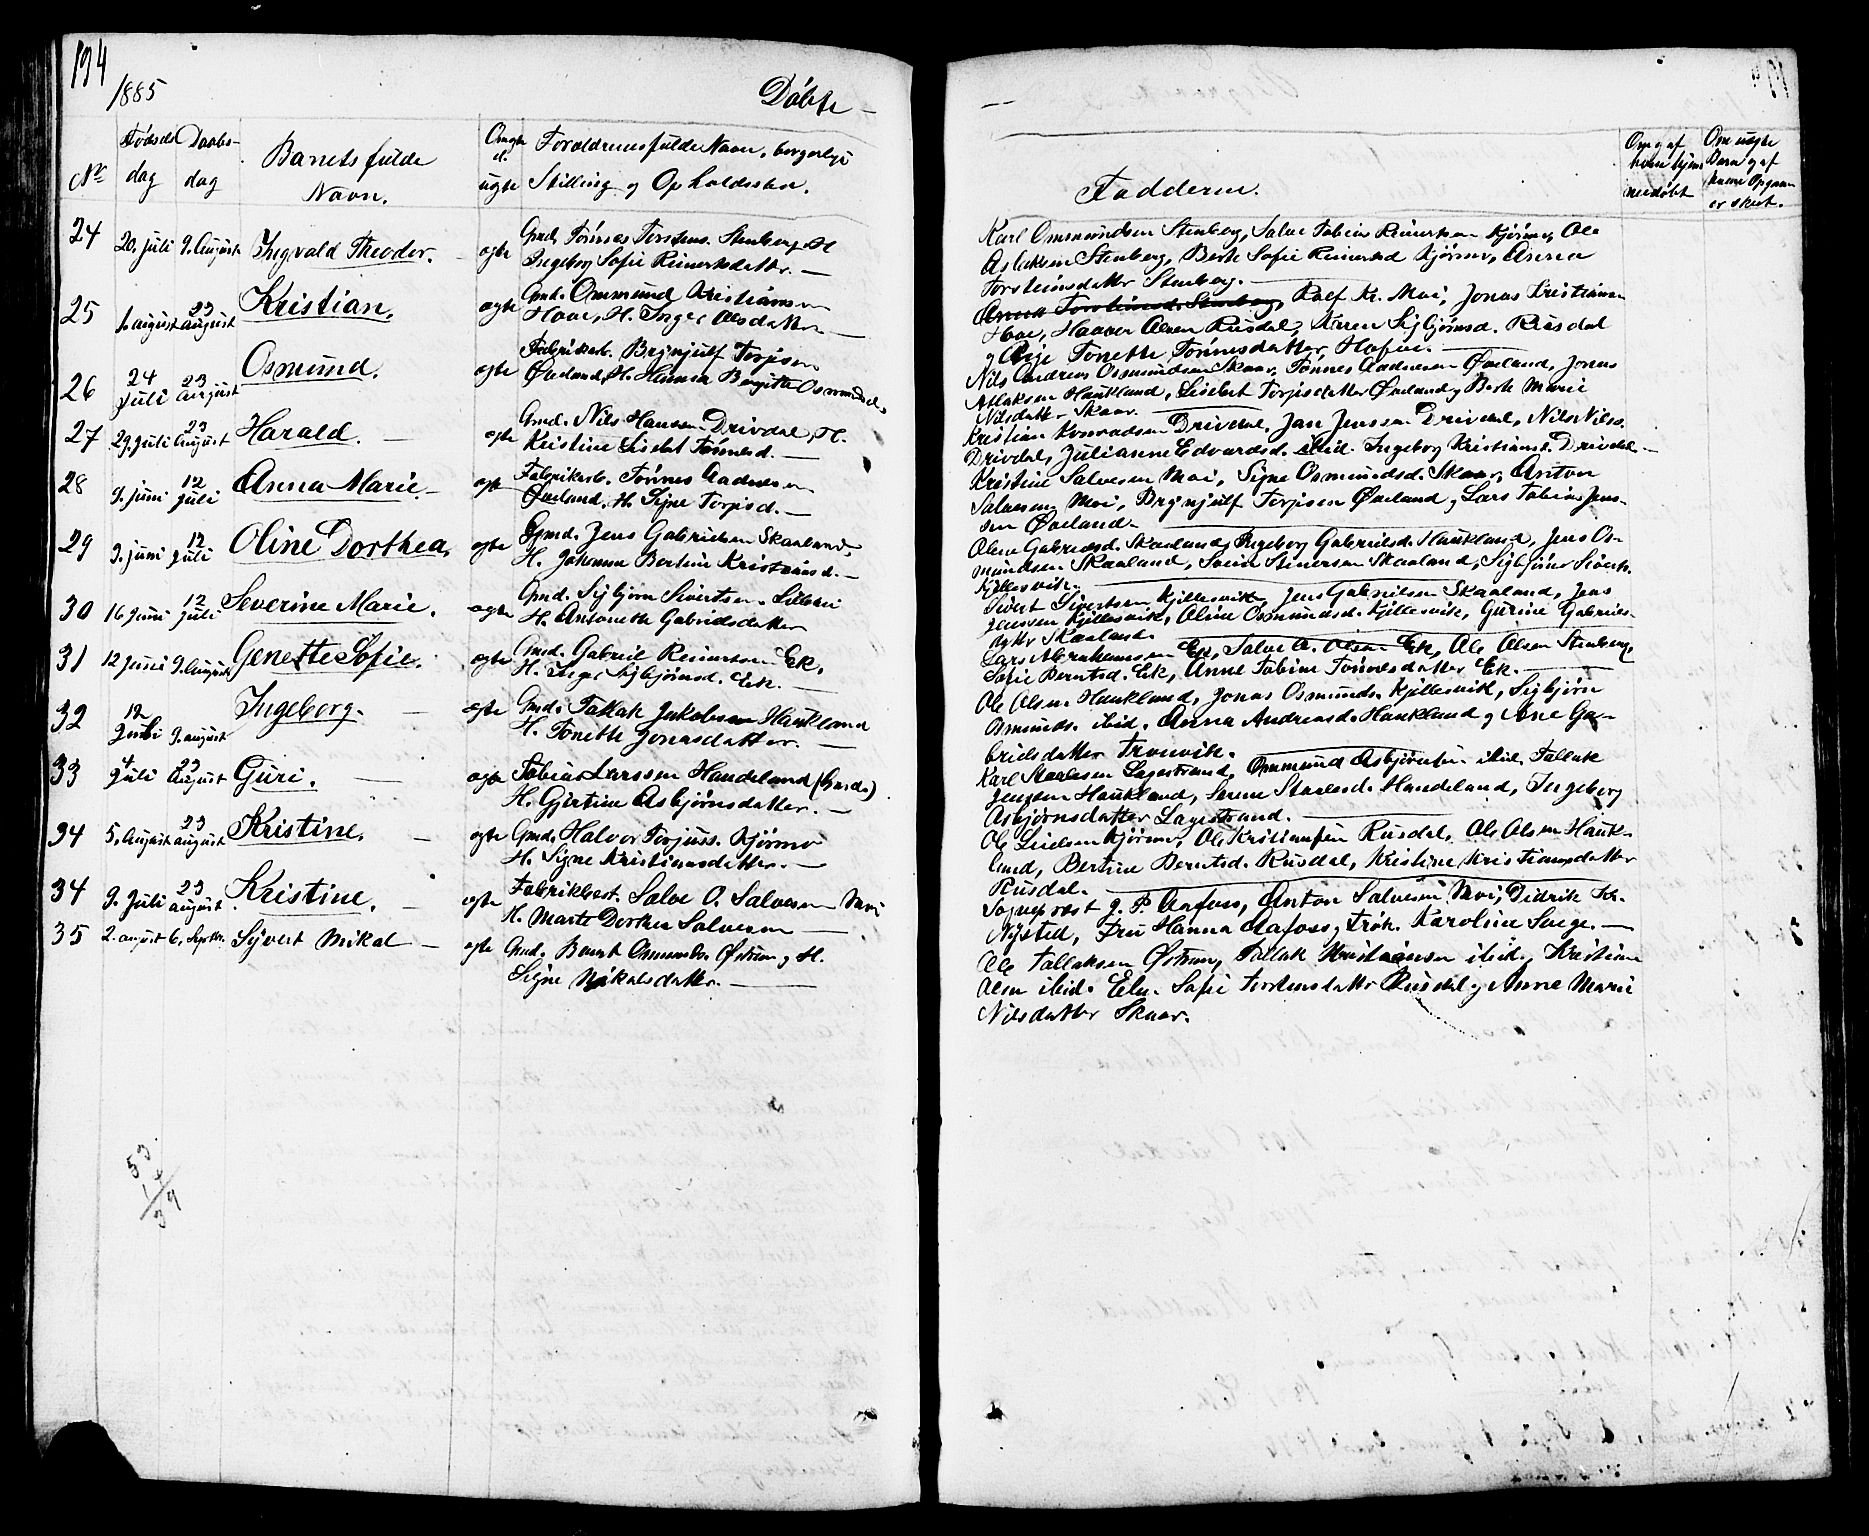 134
1885
Døbte
Nr
Fødsels dag
Daabs- dag
Barnets fulde Navn.
Om ægte el. uægte
Forældrenes fulde Navn, borgerlige
Stilling og Opholdssted.
24 20. juli 9. August Ingvald Theodor. ægte Gmd. Tønnes Torstens. Stenberg H.
Ingeborg Sofie Reinertsdatter.
25 1. august 23 august Kristian. ægte Gmd. Ommund Kristiansen
Hove, H. Inger Olsdatter
26 24 Juli 23 august Osmund. ægte Fabrikarb. Brynjulf Torjisen
Øveland, H. Hansa Bergitte Osmundsd.
27 29. juli 23 august Harald. ægte Gmd. Nils Hansen Drivdal, H.
Kristine Lisebet Tønnesd.
28 9. juni 12 juli Anna Marie ægte Fabrikarb. Tønnes Aadnesen
Øveland, H. Signe Torjisd.
29 3. juni 12 juli Oline Dorthea. ægte Gmd. Jens Gabrielsen Skaaland,
H. Johanna Bertine Kristensd.
30 16 juni 12 juli Severine Marie. ægte Gmd. Sigbjørn Sivertsen
H. Antonette Gabrielsdatter
31 12 juni 9. August Genette Sofie. ægte Gmd. Gabriel Reinertsen Ek,
H. Inger Sigbjørnsd. Ek.
32 12 Juli 9. august Ingeborg. ægte Gmd. Tallak Jakobsen Haukland
H. Tonette Jonasdatter.
33 4 Juli 23 August Guri. ægte Tobias Larssen Handeland (Gmd.)
H. Gjertine Asbjørnsdatter.
34 5. August 23 august Kristine. ægte Gmd. Halvor Torjuss. Kjørmo
H. Signe Kristiansdatter.
34 9. Juli 23 august Kristine. ægte Fabrikbest. Salve O. Salvesen Moi
H. Marte Dorthea Salvesen
35 2. august 6. Septbr. Syvert Mikal ægte Gmd. Berent Osmunds. Østrem og H.
Signe Mikalsdatter.
53
14
39
Fadderne.
Om og af hvem hjemmedøbt
Om uægte Børn og af hvem Opgaven er skeet.
Karl Ommundsen Stenberg, Salve Tobias Reinertsen Kjørmo, Ole
Aslaksen Stenberg, Berte Sofie Reinertsd Kjørmo, Anna
Torsteinsdatter Stenberg.
Anna Torsteinsd. Stenberg, Rolf Kr. Moi, Jonas Kristiansen
Hove, Haaver Olsen Rusdal, Karen Sigbjørnsd. Rusdal
og Tonette Tønnesdatter Hofve.
Nils Andreas Osmundsen Skaar, Tønnes Aadnesen Øveland, Jonas
Atlaksen Haukland, Lisebet Torjisdatter Øveland og Berte Marie
Nilsdatter Skaar.
Kristian Konradsen Drivdal, Jan Jenssen Drivdal, Nils Nilss.
Drivdal, Julianne Edvardsd. ibid. Ingeborg Kristiansd. Drivdal
Kristine Salvesen Moi, Signe Osmundsd. Skaar, Anton
Salvesen Moi, Brynjulf Torjisen Øveland og Lars Tobias Jens-
sen Øveland.
Olene Gabrielsd. Skaaland, Ingeborg Gabrielsd. Haukland, Jens Os-
mundsen Skaaland, Svein Steinersen Skaaland, Sigbjørn Sivert.
Kjellesvik.
Sivert Sivertsen Kjellesvik, Jens Gabrielsen Skaaland, Jens
Jenssen Kjellesvik, Oline Osmundsd. Kjellesvik, Gurine Gabriels-
datter Skaaland.
Lars Abrahamsen Ek, Salve A. Olsen Ek, Ole Olsen Stenberg,
Sofie Berntsd. Ek, Anne Tobine Tønnesdatter Ek.
Ole Olsen Haukland, Jonas Osmunds. Kjellesvik, Sigbjørn
Osmunds. ibid. Anna Andreasd. Haukland og Ane Ga-
brielsdatter Tronvik.
Karl Staalesen Lagestrand, Ommund Asbjørnsen ibid. Tallak
Jenssen Haukland, Serene Staalesd. Handeland, Ingeborg
Asbjørnsdatter Lagestrand.
Ole Kjørmo, Ole Kristiansen Rusdal, Ole Olsen Hauk-
land, Bertine Berntsd. Rusdal, Kristine Kristiansdatter
Rusdal.
Sogneprest J. P. Aafoss, Anton Salvesen Moi, Didrik Kr.
Nysted, Fru Hanna Aafoss, Frøk. Karoline Svege.
Ole Tallaksen Østrem, Tallak Kristiansen ibid., Kristian
Olsen ibid. Elen Sofie Torstensdatter Rusdal og Anne Marie
Nilsdatter Skaar.